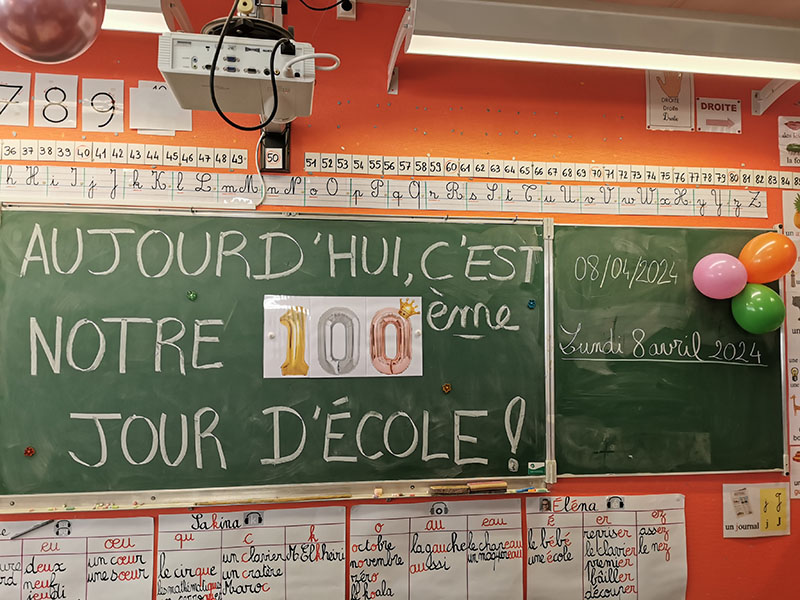 7 8 9
36 37 38 39 40 41 42 43 44 45 46 47 48 49 50 51 52 53 54 55 56 57 58 59 60 61 62 63 64 65 66 67 68 69 70 71 72 73 74 75 76 77 78 79 80 81 82 83 84
h H i I j J k K l L m M n N o O p P q Q r R s S t T u U v V w W x X y Y z Z
DROITE
Droite
Droite
DROITE
AUJOURD'HUI, C'EST
NOTRE 100ème
JOUR D'ÉCOLE !
08/04/2024
Lundi 8 avril 2024
eu œu
deux un cœur
neuf une sœur
jeudi
Sakina
qu c k
le cirque un clavier M Elkhéiri
les mathématiques un cratère
Maroc
o au eau
octobre la gauche le chapeau
novembre aussi un maquereau
zéro
le koala
Éléna
é er ez
le bébé repriser assez
une école le clavier le nez
premier
bâiller
découper
un journal
j J
j